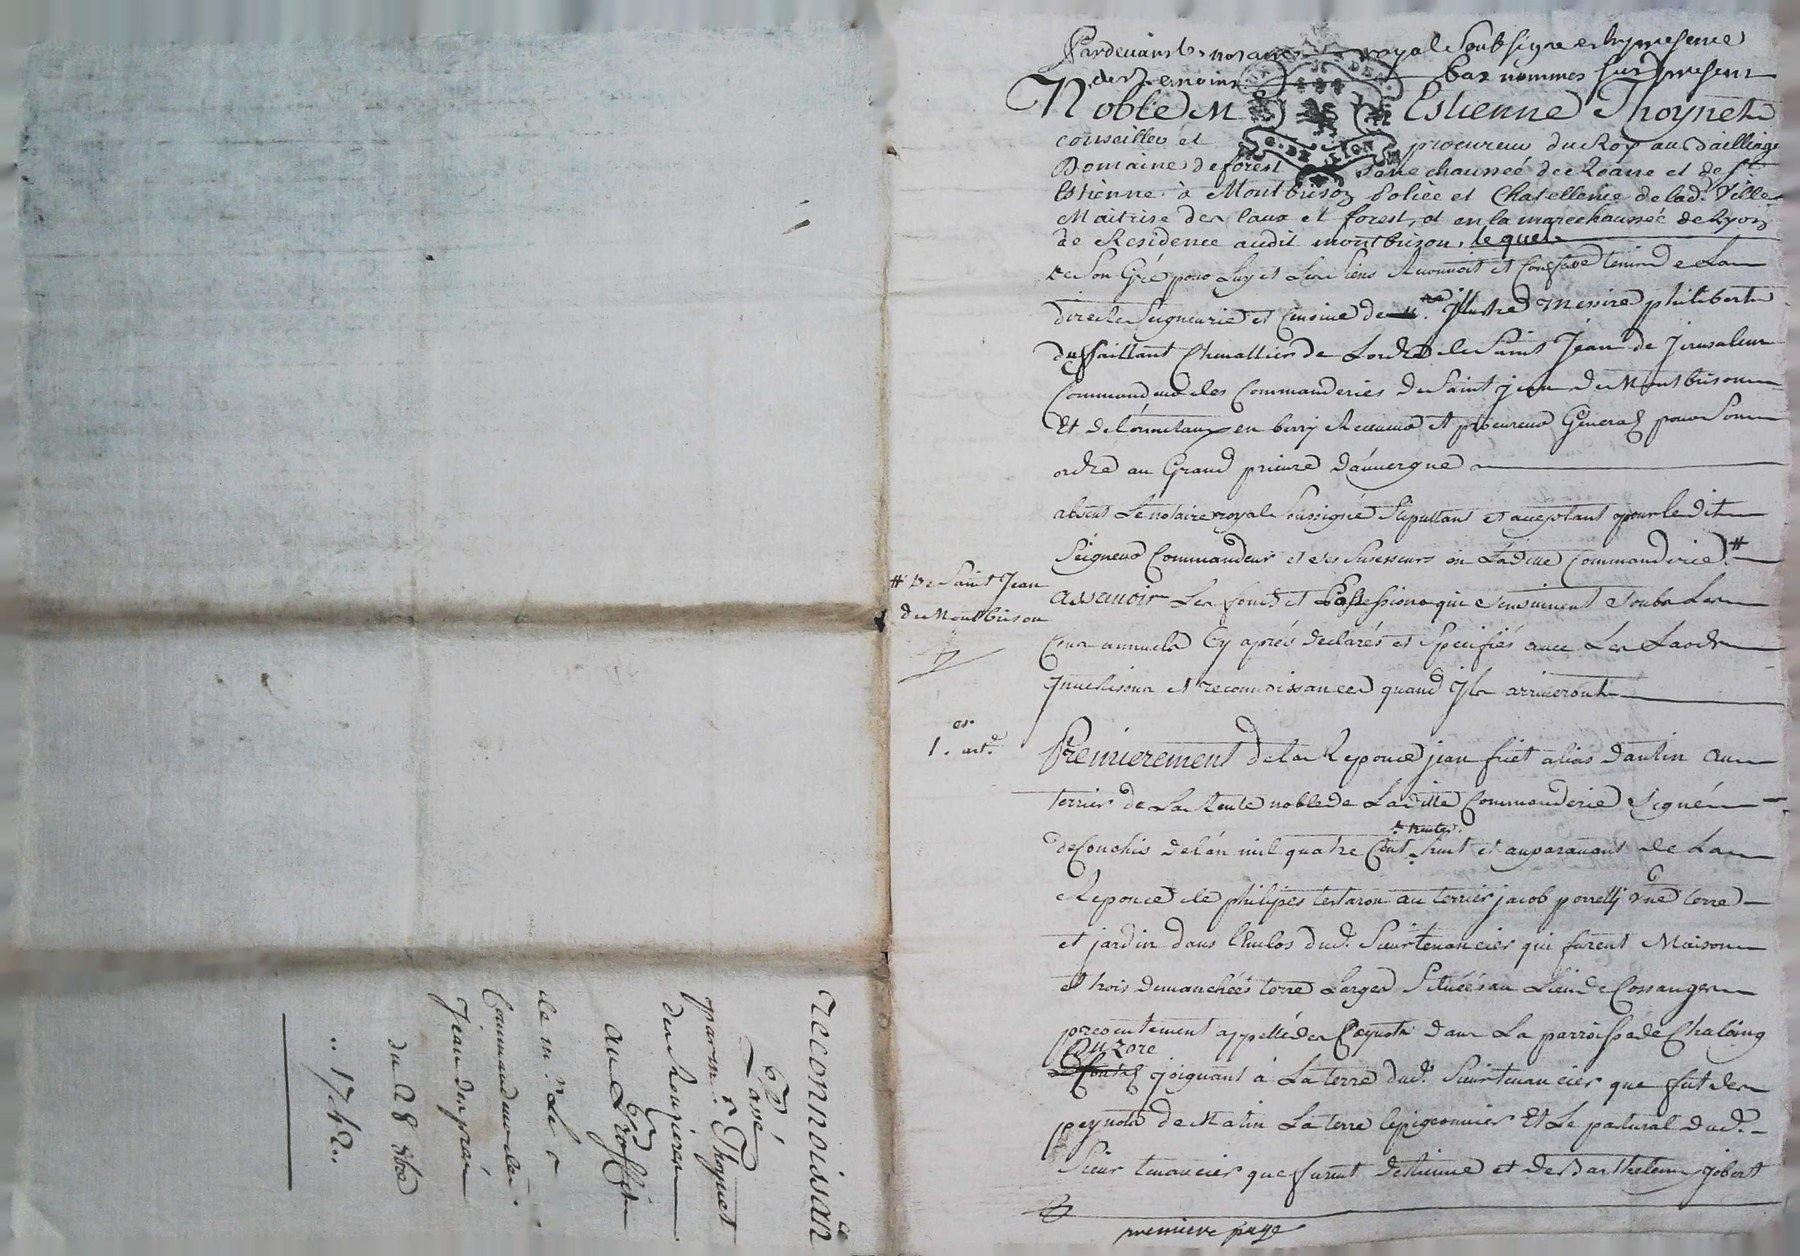 reconnoissance
Passé
par m.r Thoynet
des Rouzieres
au Proffit
de m.r Le
Commandeur de
Jean des prés
du 28 8bre
1742
Pardevant le notaire royal soubsigné et en presence
des temoins bas nommes fut present
Noble M Estienne Thoynet
conseiller et procureur du Roy au Bailliage
Domaine de forest Senechaussée de Roane et de St
Estienne à Montbrison Police et Chatellenie de lad. Ville
Maitrise des Eaux et forest, et en la marechaussée de Lyon
de Residence audit montbrison, lequel
de Son Gré pour Luy et Les Siens Reconnoit et Confesse tenir de La
directe Seigneurie et Censive de illustre Messire philibert
dussaillant Chevallier de Lordre de Saint Jean de Jerusalem
Commandeur des Commanderies de Saint jean de Montbrison
Et de Lormetaux en berry Receveur et procureur General pour Son
ordre au Grand prieuré d'auvergne
absent Le notaire royal soussigné Stipullant et acceptant pour le dit
Seigneur Commandeur et ses Successeurs en Laditte Commanderie #
# De Saint Jean
de Montbrison
assavoir Les fonds et Possessions qui s'ensuivent Soubs Les
Cens annuels Cy aprés declarés et Specifiés avec Les Laods
Invetisons et reconnoissances quand Ils arriveront
1.er art.e
Premierement de la Reponce jean friet alias dantin au
terrier de La Rente noble de Laditte Commanderie Signé
de Conchis de l'an mil quatre Cent trente huit et auparavant de La
Reponce de philipes testaron au terrier jacob porrelly Une terre
et jardin dans l'Enclos dud. Sieur tenancier qui furent Maison
et trois demanchées terre Largee Scituées au Lieu de Cossanges
presentement appellé des Peynots dans La parroisse de Chalaing
Duzore
joignant à La terre dud. Sieur tenancier que fut des
peynots de Matin La terre lepigeonnier Et Le pastural dud.
Sieur tenancier que furent d'etienne et de Barthelemy jobert
premiere page